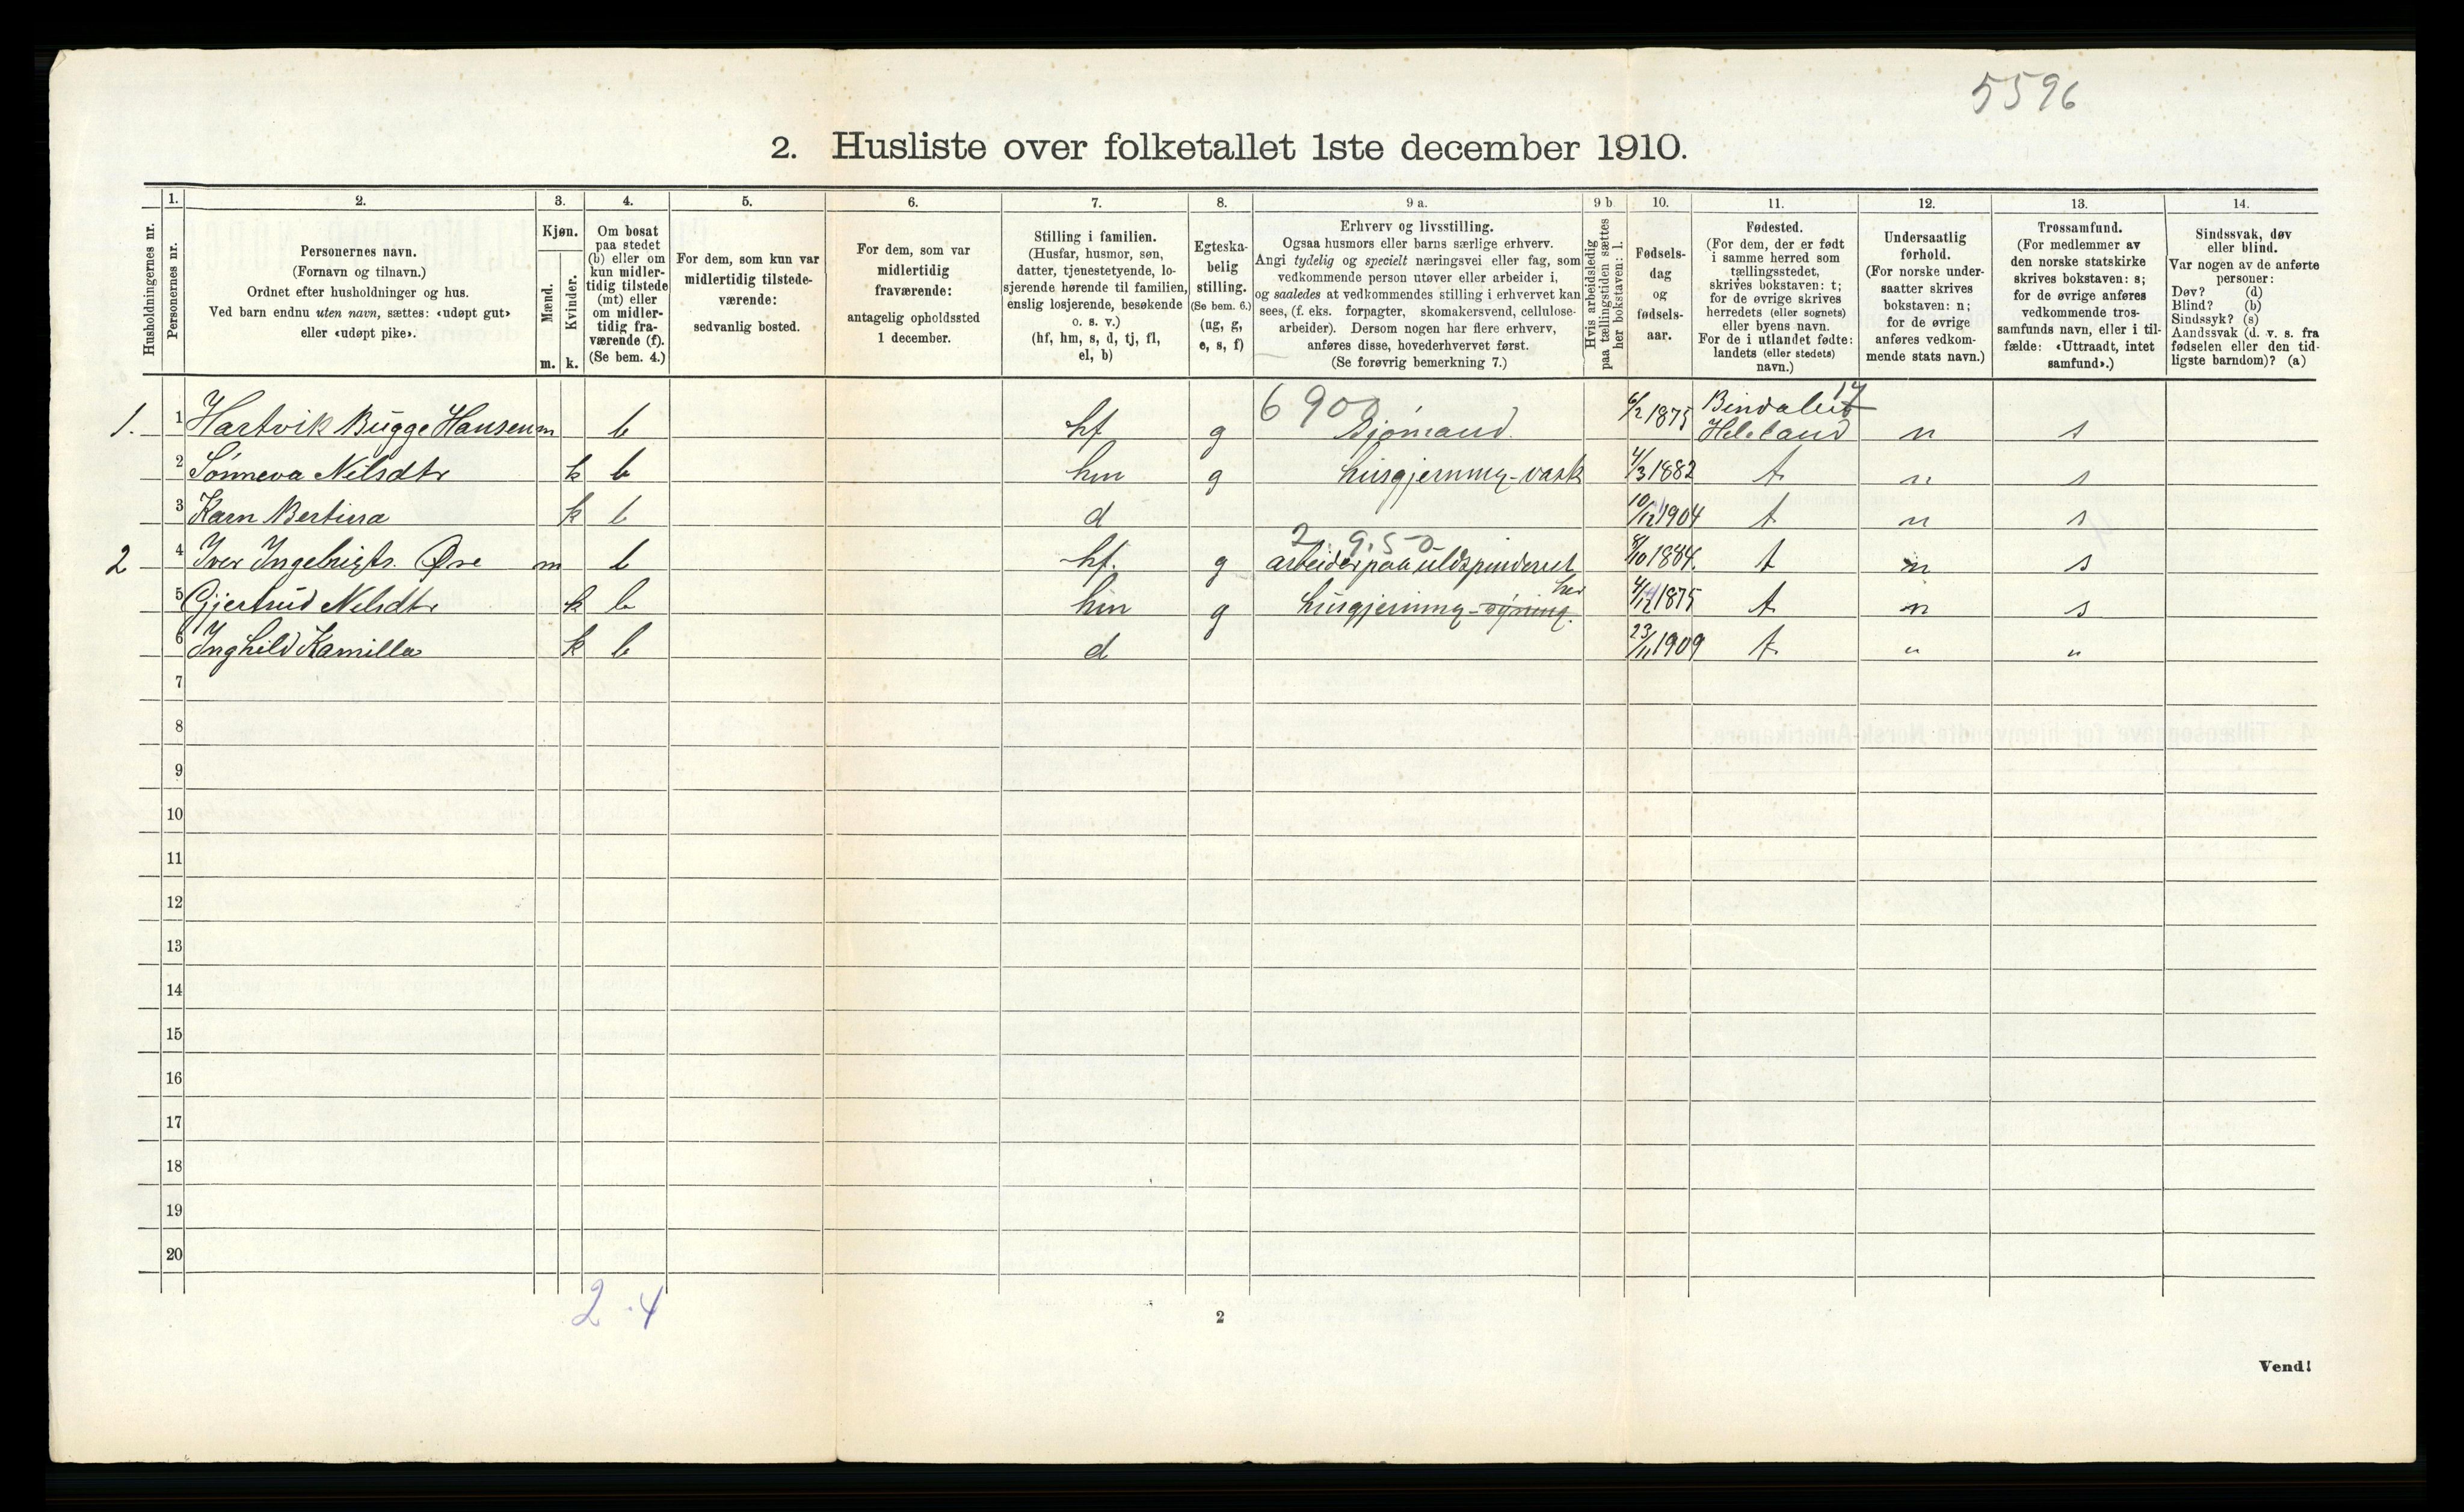 5596
2. Husliste over folketallet 1ste december 1910.
Husholdningernes nr.
1.
Personernes nr.
2.
Personernes navn.
(Fornavn og tilnavn.)
Ordnet efter husholdninger og hus.
Ved barn endnu uten navn, sættes: «udøpt gut»
eller «udøpt pike».
3.
Kjøn.
Mænd.
Kvinder.
m. k.
4.
Om bosat
paa stedet
(b) eller om
kun midler-
tidig tilstede
(mt) eller
om midler-
tidig fra-
værende (f).
(Se bem. 4.)
5.
For dem, som kun var
midlertidig tilstede-
værende:
sedvanlig bosted.
6.
For dem, som var
midlertidig
fraværende:
antagelig opholdssted
1 december.
7.
Stilling i familien.
(Husfar, husmor, søn,
datter, tjenestetyende, lo-
sjerende hørende til familien,
enslig losjerende, besøkende
o. s. v.)
(hf, hm, s, d, tj, fl,
el, b)
8.
Egteska-
belig
stilling.
(Se bem. 6.)
(ug, g,
e, s, f)
9 a.
Erhverv og livsstilling.
Ogsaa husmors eller barns særlige erhverv.
Angi tydelig og specielt næringsvei eller fag, som
vedkommende person utøver eller arbeider i,
og saaledes at vedkommendes stilling i erhvervet kan
sees, (f. eks. forpagter, skomakersvend, cellulose-
arbeider). Dersom nogen har flere erhverv,
anføres disse, hovederhvervet først.
(Se forøvrig bemerkning 7.)
9 b
Hvis arbeidsledig
paa tællingstiden sættes
her bokstaven: l.
10.
Fødsels-
dag
og
fødsels-
aar.
11.
Fødested.
(For dem, der er født
i samme herred som
tællingsstedet,
skrives bokstaven: t;
for de øvrige skrives
herredets (eller sognets)
eller byens navn.
For de i utlandet fødte:
landets (eller stedets)
navn.)
12.
Undersaatlig
forhold.
(For norske under-
saatter skrives
bokstaven: n;
for de øvrige
anføres vedkom-
mende stats navn.)
13.
Trossamfund.
(For medlemmer av
den norske statskirke
skrives bokstaven: s;
for de øvrige anføres
vedkommende tros-
samfunds navn, eller i til-
fælde: «Uttraadt, intet
samfund».)
14.
Sindssvak, døv
eller blind.
Var nogen av de anførte
personer:
Døv? (d)
Blind? (b)
Sindssyk? (s)
Aandssvak (d. v. s. fra
fødselen eller den tid-
ligste barndom)? (a)
6900 17
1. 1 Hartvik Bugge Hansen m b hf g Sjømand 6/2 1875 Bindalen Helgeland n s
2 Sønneva Nilsdtr k b hm g husgjerning - vask 4/3 1882 t n s
3 Karn Bertina k b d 10/12 1904 t n s
2 9.50
2 4 Iver Ingebrigts. Øre m b hf. g arbeider paa uldspinderiet 8/10 1884 t n s
her
5 Gjertrud Nilsdtr k b hm g husgjerning - syning. 4/12 1875 t n s
6 Inghild Kamilla k b d 23/11 1909 t " "
7
8
9
10
11
12
13
14
15
16
17
18
19
20
2 . 4
2
Vend!